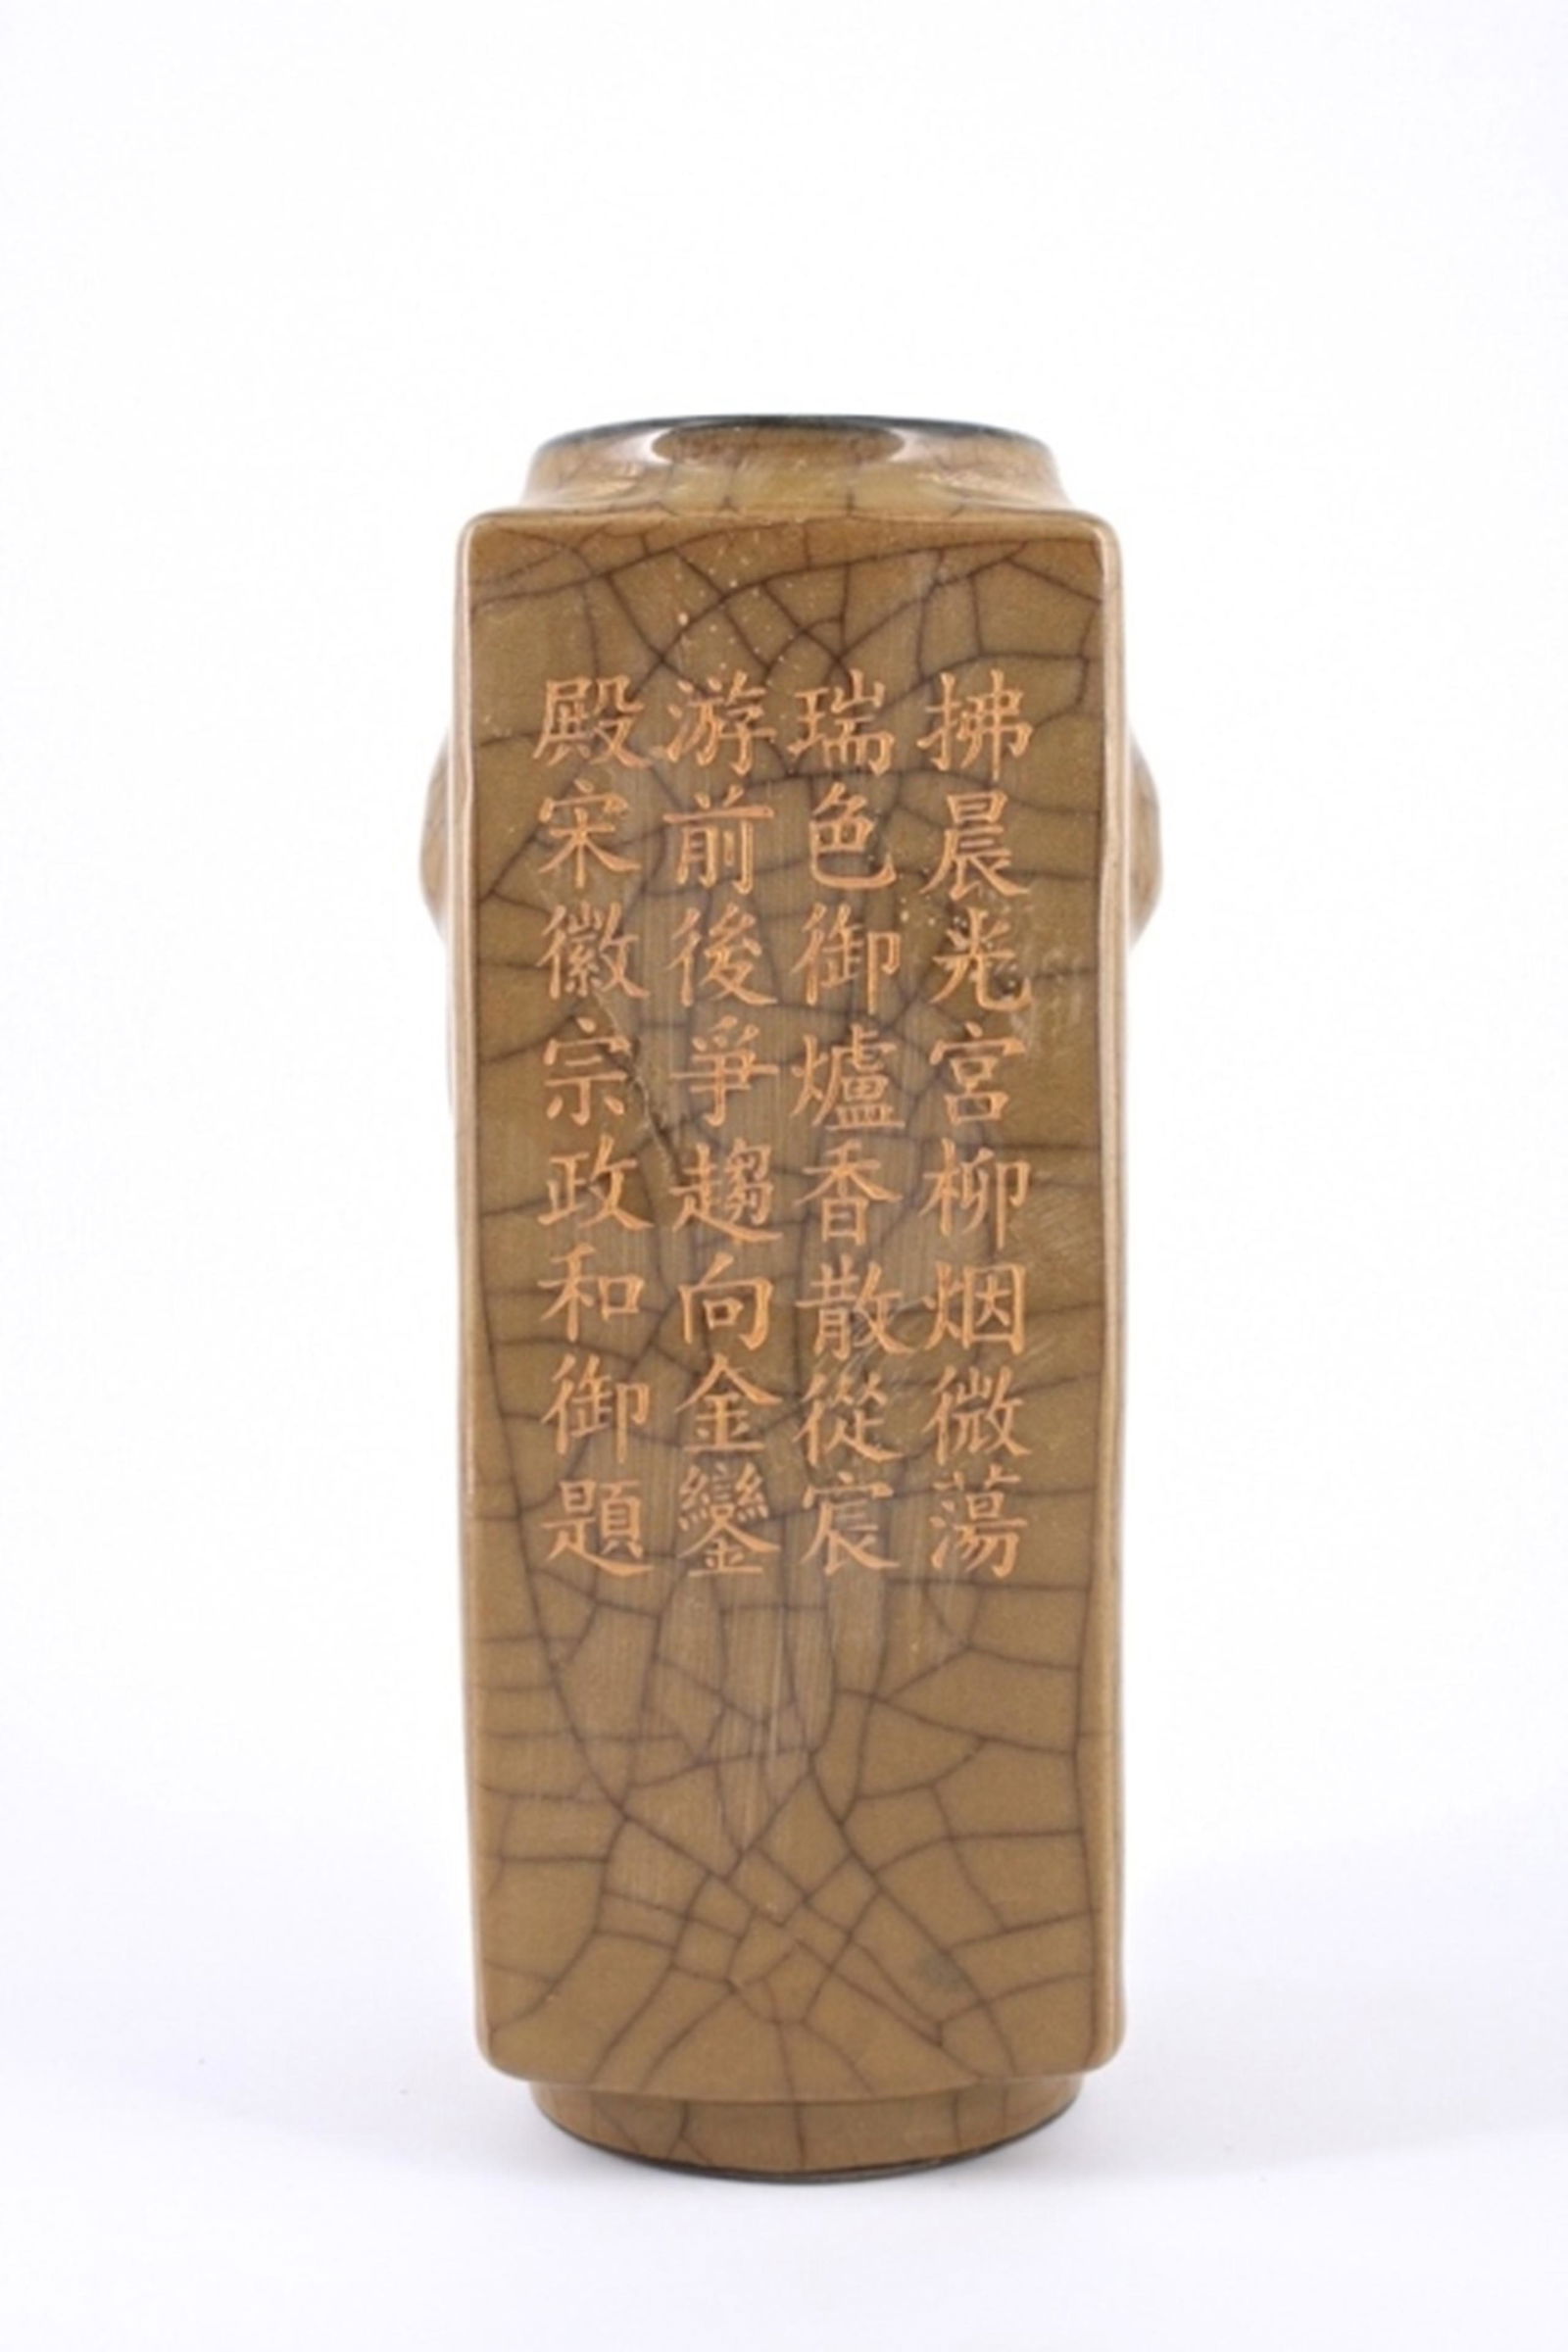 拂晨光宮柳烟微蕩
瑞色御爐香散從宸
游前後爭趨向金鑾
殿宋徽宗政和御題